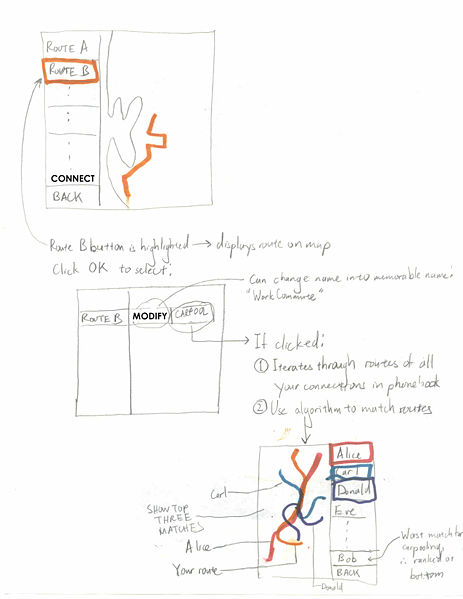 ROUTE A
ROUTE B
CONNECT
BACK
Route B button is highlighted → displays route on map
Click OK to select:
Can change name into memorable name:
"Work Commute"
ROUTE B
MODIFY
CARPOOL
If clicked:
① Iterates through routes of all
your connections in phonebook
② Use algorithm to match routes
Alice
Carl
Donald
Eve
Bob
BACK
Carl
SHOW TOP
THREE
MATCHES
Alice
Your route
Donald
Worst match for
carpooling,
∴ ranked at
bottom